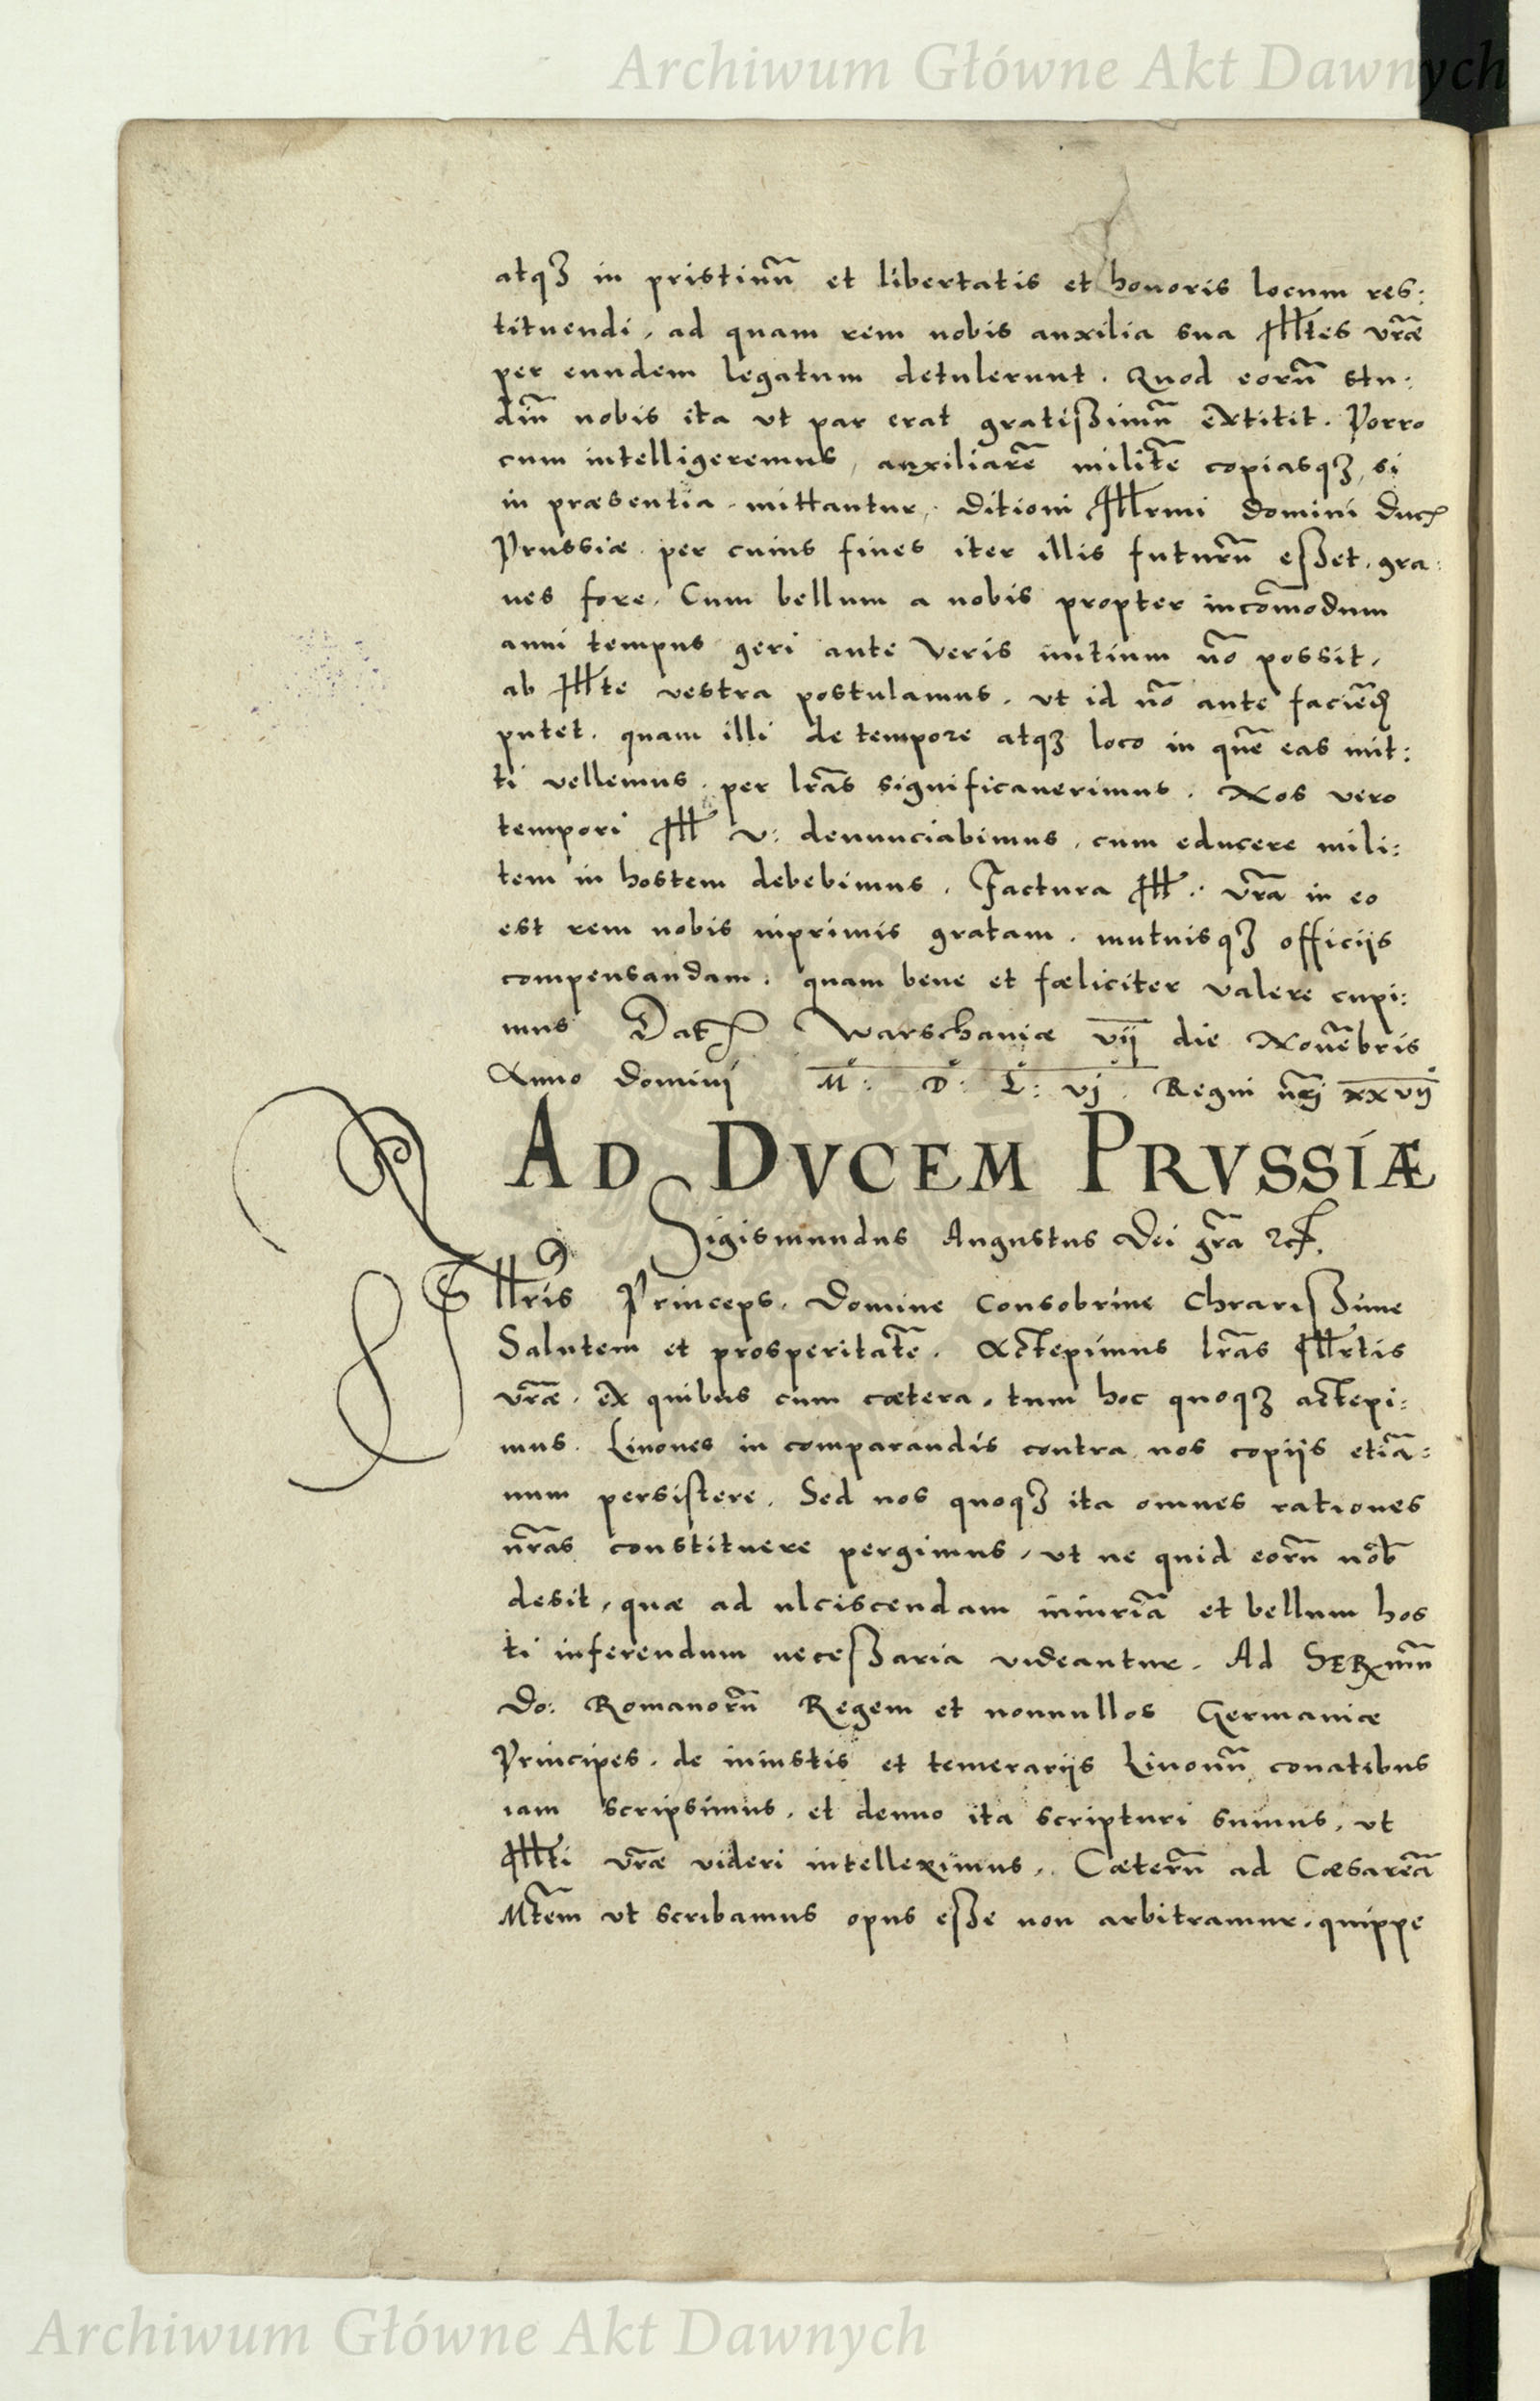 Archiwum Główne Akt Dawnych
atqꝫ in pristinũ et libertatis et honoris locum res:
tituendi, ad quam rem nobis auxilia sua Illtes vr̃æ
per eundem legatum detulerunt. Quod eorũ stu:
diũ nobis ita vt par erat gratißimũ extitit. Porro
cum intelligeremus, auxiliarẽ militẽ copiasqꝫ, si
in præsentia mittantur, ditioni Illrmi domini Duc̃
Prussiæ per cuius fines iter illis futurũ eßet, gra:
ues fore. Cum bellum a nobis propter incõmodum
anni tempus geri ante Veris initium nõ possit,
ab Illte vestra postulamus, vt id nõ ante faciẽd
putet, quam illi de tempore atqꝫ loco in quẽ eas mit:
ti vellemus, per lr̃as significauerimus. Nos vero
tempori Ill v: denunciabimus, cum educere mili:
tem in hostem debebimus. Factura Ill: vr̃a in eo
est rem nobis inprimis gratam, mutuisqꝫ officijs
compensandam, quam bene et fæliciter valere cupi:
mus Dat Warschauiæ vij die Nouẽbris
Anno Domini M: D: L: vj. Regni nr̃i xxvij
AD DVCEM PRVSSIÆ
Sigismundus Augustus Dei gr̃a ꝛc.
Illris Princeps, Domine Consobrine Chrarißime
Salutem et prosperitatẽ. Acctepimus lr̃as Illrtis
vr̃æ, ex quibus cum cætera, tum hoc quoqꝫ acctepi:
mus. Liuones in comparandis contra nos copijs etiã:
num persistere. Sed nos quoqꝫ ita omnes rationes
nr̃as constituere pergimus, vt ne quid eorũ nob̃
desit, quæ ad ulciscendam iniuriã et bellum hos
ti inferendum neceßaria videantur. Ad SERmũ
Do: Romanorũ Regem et nonnullos Germaniæ
Principes, de iniustis et temerarijs Liuonũ conatibus
iam scripsimus, et denuo ita scripturi sumus, vt
Illti vr̃æ videri intelleximus. Cæterũ ad Cæsareã
Mt̃em vt scribamus opus eße non arbitramur, quippe
Archiwum Główne Akt Dawnych